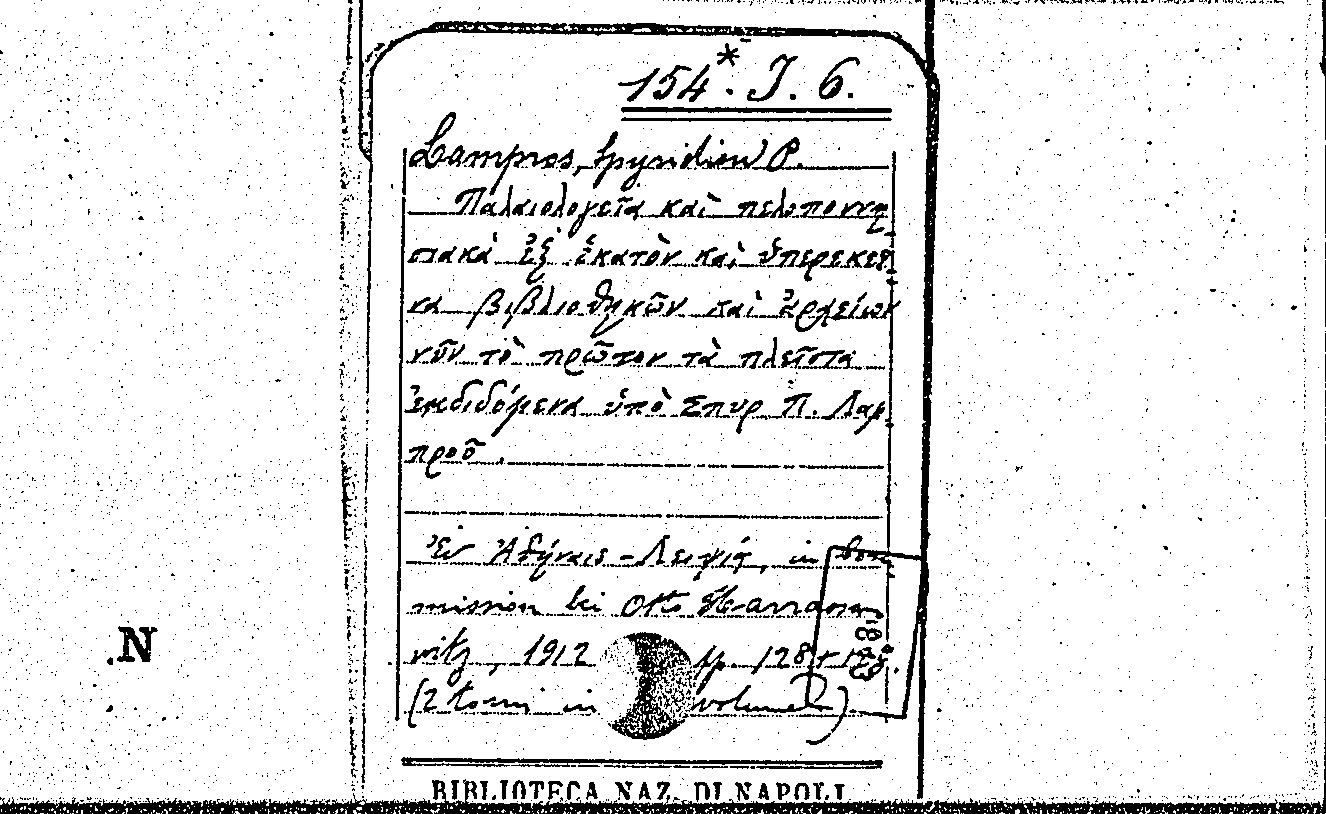 154*. J. 6.
Lampros, Spyridion P.
Παλαιολογεῖα καὶ πελοποννη
σιακὰ ἐξ ἑκατὸν καὶ ὑπερεκεῖ
να βιβλιοθηκῶν καὶ ἀρχείων
νῦν τὸ πρῶτον τὰ πλεῖστα
ἐκδιδόμενα ὑπὸ Σπυρ Π. Λαμ
προῦ.
Ἐν Ἀθήναις - Λειψίᾳ, in Kom
mission bei Otto Harrasso
witz, 1912 pp. 128 +
(2 tomi in volume)
.N
BIBLIOTECA NAZ. DI NAPOLI